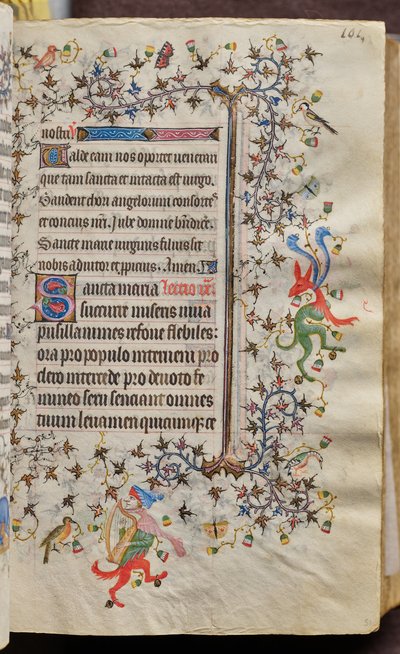 184
nostri
Valde eam nos oportet venerari
que tam sancta et intacta est virgo.
Gaudent chori angelorum consorte
et concius nri. Iube domne bndice.
Sancte marie virginis filius sit
nobis adiutor et ppicius. Amen.
Sancta maria Lectio
succurre miseris iuua
pusillanimes refoue flebiles:
ora pro populo interueni pro
clero intercede pro deuoto fe
mineo sexu senciant omnes
tuum leuamen quicumqz ce